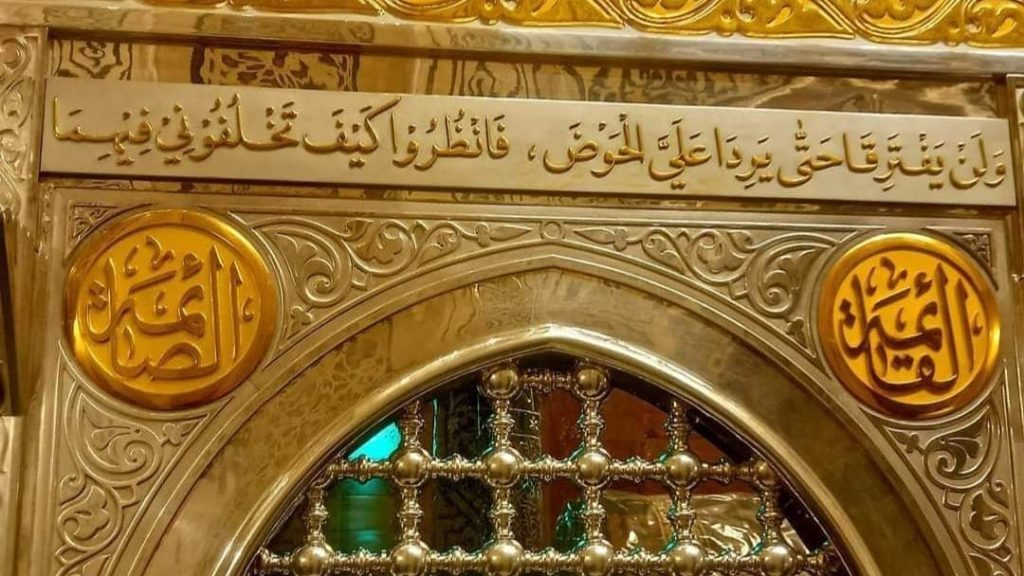 وَلَنْ يَفْتَرِقَا حَتَّى يَرِدَا عَلَيَّ الْحَوْضَ ، فَانْظُرُوا كَيْفَ تَخْلُفُونِي فِيهِمَا
القائمة
الصائمة